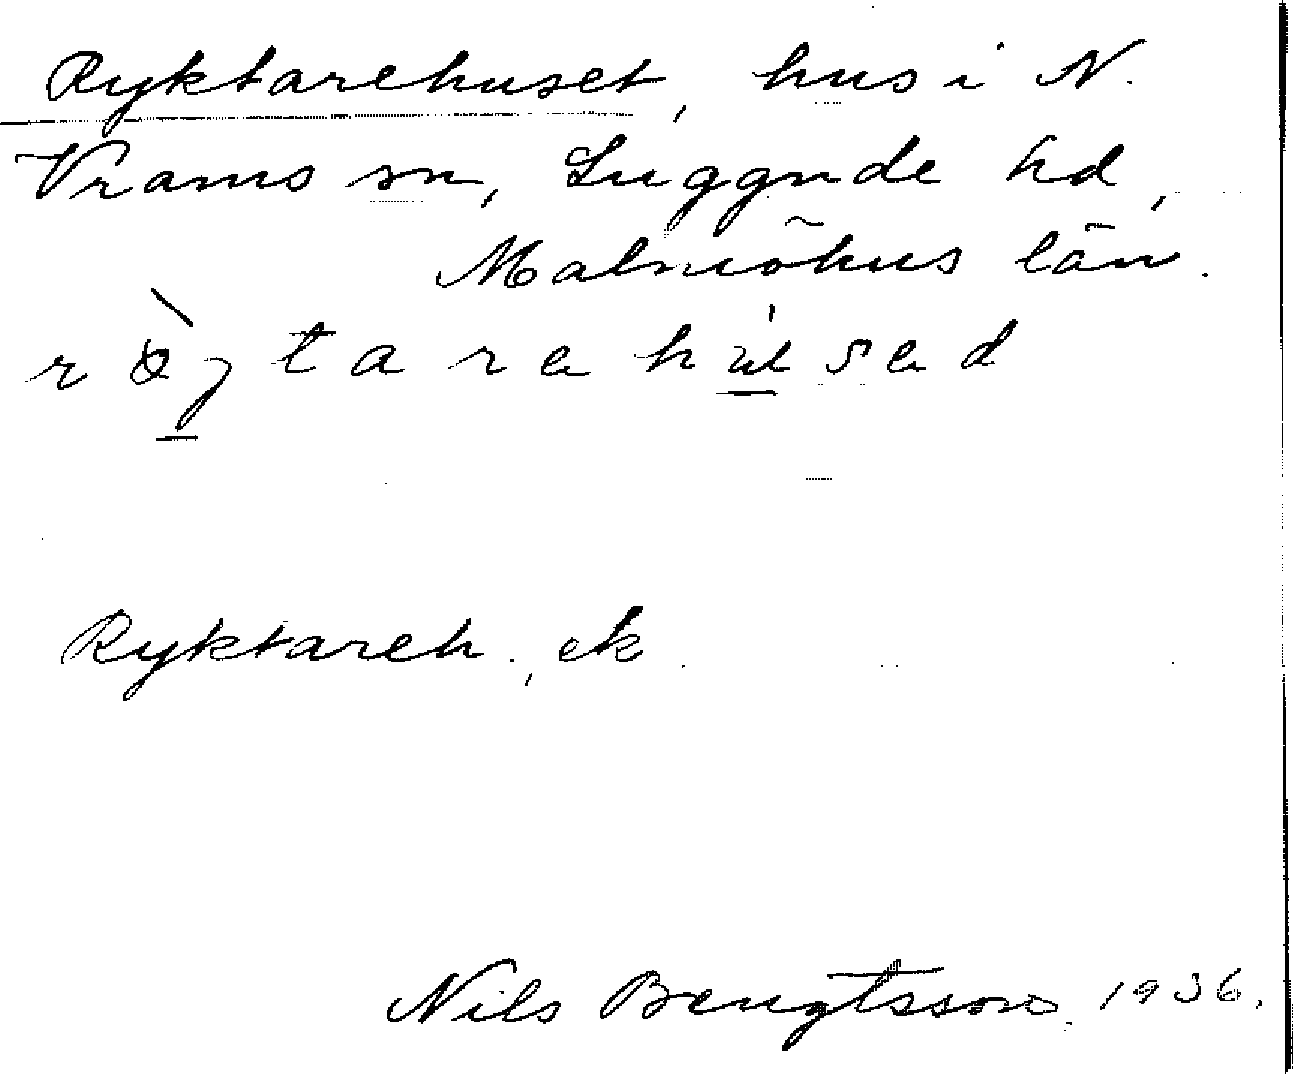 Ryktarehuset, hus i N.
Vrams sn, Luggude hd,
Malmöhus län.
Ryktareh., ek.
Nils Bengtsson. 1936.